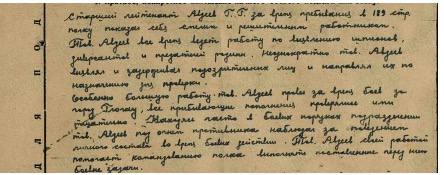 Старший лейтенант Авдеев Г.Г. за время пребывания в 189 стр.
полку показал себя смелым и решительным работником.
Тов. Авдеев все время ведет работу по выявлению шпионов,
диверсантов и предателей родины. Неоднократно тов. Авдеев
выявлял и задерживал подозрительных лиц и направлял их по
назначению для проверки.
Особенно большую работу тов. Авдеев провел за время боев за
город все прибывающие пополнения проверялись ими
тщательно. Находясь часто в боевых порядках подразделений
тов. Авдеев под огнем противника наблюдал за поведением
личного состава во время боевых действий. Тов. Авдеев своей работой
помогает командованию полка выполнить поставленные перед ним
боевые задачи.
ДЛЯ ПОД